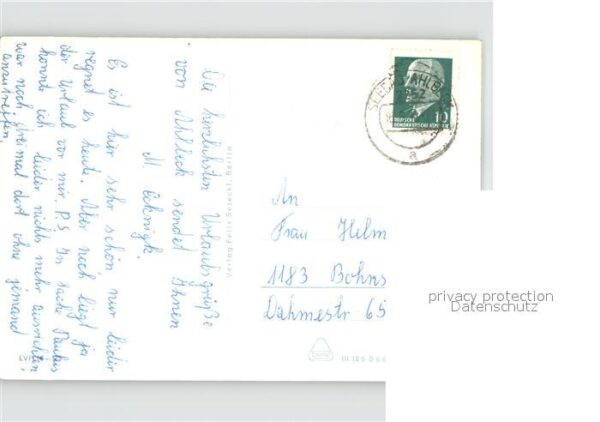 Die herzlichsten Urlaubsgrüße
von Ahlbeck sendet Ihnen
M.
Es ist hier sehr schön nur leider
regnet es heute. Aber noch liegt ja
der Urlaub vor mir. P.S. In Sache Paulus
konnte ich leider nichts mehr ausrichten
war noch zweimal dort ohne jemand
anzutreffen.
Verlag Felix Setecki, Berlin
SEEBAD AHLBECK
10
DEUTSCHE
DEMOKRATISCHE REPUBLIK
a
An
Frau Helm
1183 Bohns
Dahmestr 65
privacy protection
Datenschutz